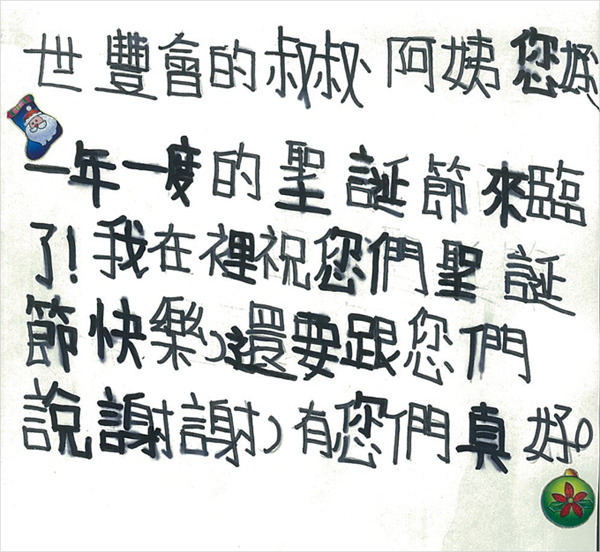 世豐會的叔叔阿姨您好
一年一度的聖誕節來臨
了!我在裡祝您們聖誕
節快樂,還要跟您們
說謝謝,有您們真好。